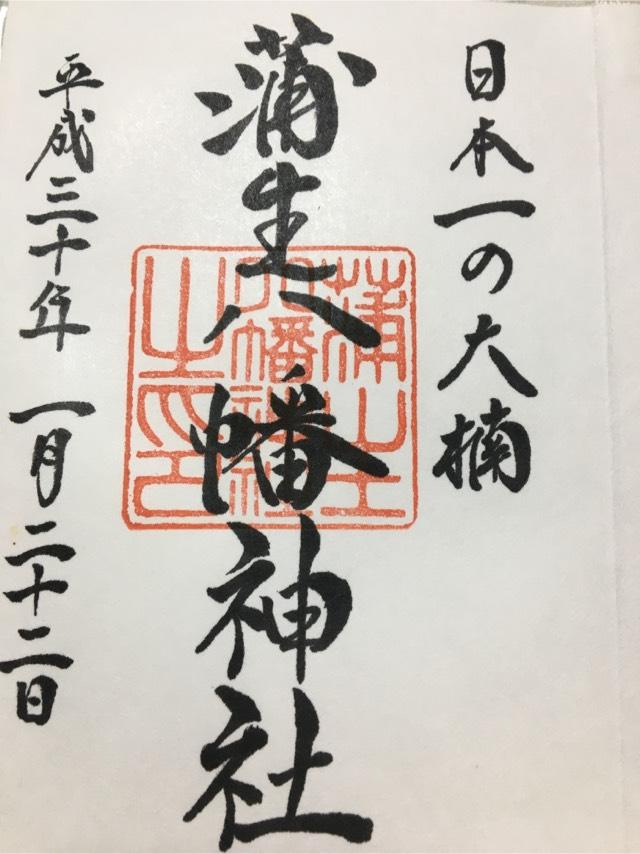 日本一の大楠
蒲生八幡神社
蒲生
八幡神社
之印
平成三十年 一月二十二日